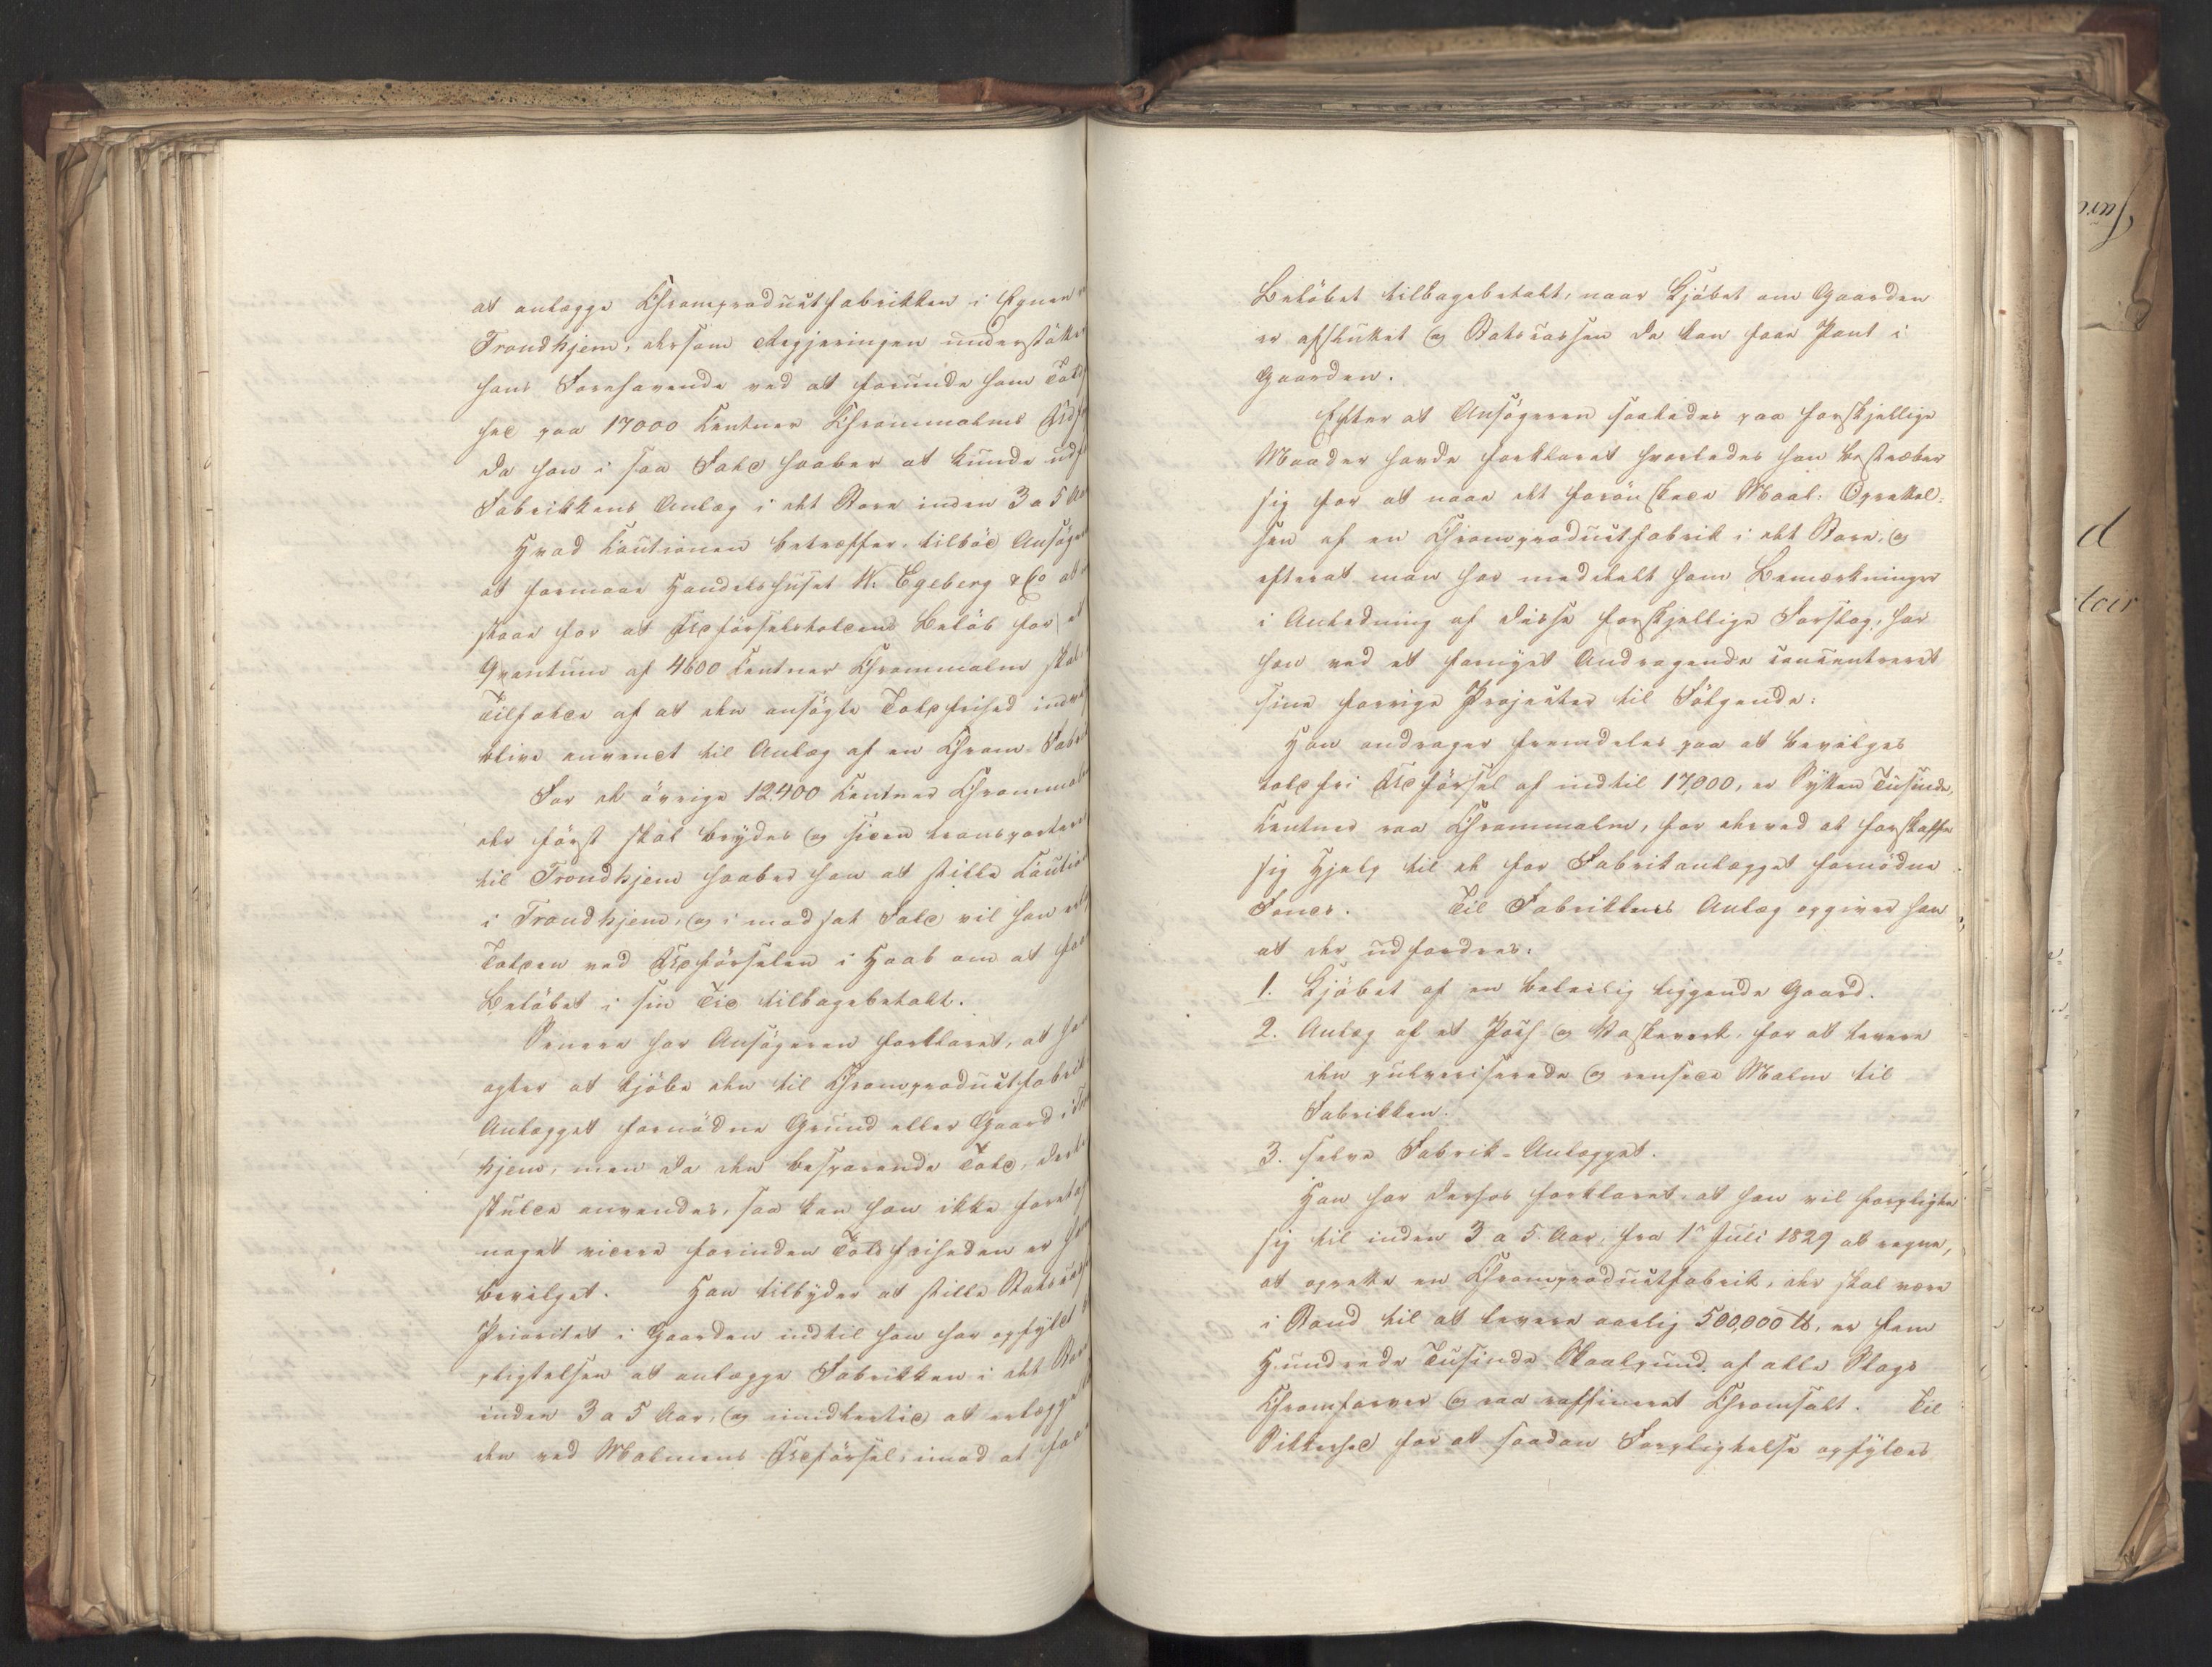 at anlægge Chromproductfabrikken i Egnen
Trondhjem, dersom Regjeringen understøtter
hans Forehavende ved at forunde ham Told
hed paa 17000 Centner Chrommalms Udf
da han i saa Fald haaber at kunde udf
Fabrikkens Anlæg i det Store inden 3 a 5 Aa
Hvad Cautionen betræffer, tilbød Ansøge
at formaae Handelshuset W. Egeberg & Co at
staae for at Udførselstoldens Beløb for et
Qvantum af 4600 Centner Chrommalm skal
Tilfælde af at den ansøgte Toldfrihed indv
blive anvendt til Anlæg af en Chrom-Fabri
For de øvrige 12,400 Centner Chrommal
der først skal brydes og siden transportere
til Trondhjem haaber han at stille Cautio
i Trondhjem, og i modsat Fald vil han erl
Tolden ved Udførselen i Haab om at faa
Beløbet i sin Tid tilbagebetalt.
Senere har Ansøgeren forklaret, at ha
agter at kjøbe den til Chromproductfabrik
Anlægget fornødne Grund eller Gaard i Tro
hjem, men da den besparende Told, dert
skulde anvendes, saa kan han ikke foretag
noget videre forinden Toldfriheden er ha
bevilget. Han tilbyder at stille Statscas
Prioritet i Gaarden indtil han har opfyldt
pligtelsen at anlægge Fabrikken i det Sto
inden 3 a 5 Aar, og imidlertid at erlægge
den ved Malmens Udførsel, imod at faa
Beløbet tilbagebetalt, naar Kjøbet om Gaarden
er afsluttet og Statscassen da kan faae Pant i
Gaarden.
Efter at Ansøgeren saaledes paa forskjellige
Maader havde forklaret hvorledes han bestræber
sig for at naae det forønskede Maal: Oprettel-
sen af en Chromproductfabrik i det Store, og
efterat man har meddeelt ham Bemærkninger
i Anledning af disse forskjellige Forslag, har
han ved et fornyet Andragende concentreret
sine forrige Projecter til Følgende:
Han andrager fremdeles paa at bevilges
toldfri Udførsel af indtil 17,000, er Sytten Tusinde,
Centner raa Chrommalm, for derved at forskaffe
sig Hjelp til de for Fabrikanlægget fornødne
Fonds. Til Fabrikkens Anlæg opgiver han
at der udfordres:
1. Kjøbet af en beleilig liggende Gaard.
2. Anlæg af et Poch- og Vaskeverk, for at levere
den pulveriserede og rensede Malm til
Fabrikken.
3. selve Fabrik-Anlægget.
Han har derhos forklaret, at han vil forpligte
sig til inden 3 a 5 Aar, fra 1ste Juli 1829 at regne,
at oprette en Chromproductfabrik, der skal være
i Stand til at levere aarlig 500,000 ℔, er fem
Hundrede Tusinde Skaalpund af alle Slags
Chromfarver og raa raffineret Chromsalt. Til
Sikkerhed for at saadan Forpligtelse opfyldes